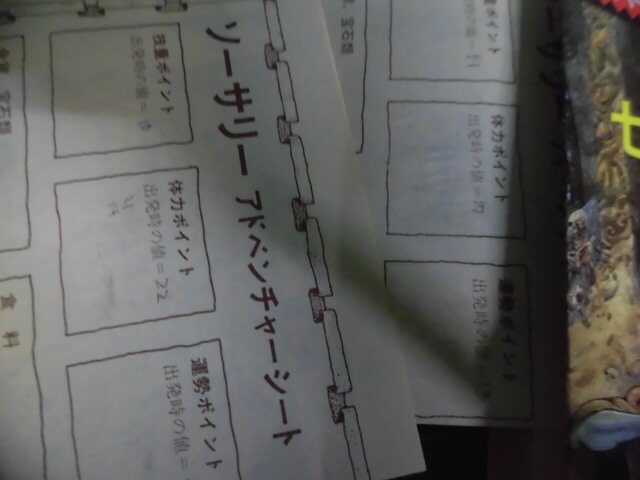 ソーサリー アドベンチャーシート
技量ポイント
出発時の値=
体力ポイント
出発時の値=22
運勢ポイント
出発時の値=
金貨、宝石類
食料
技量ポイント
出発時の値=11
体力ポイント
出発時の値=17
運勢ポイント
出発時の値=
宝石類